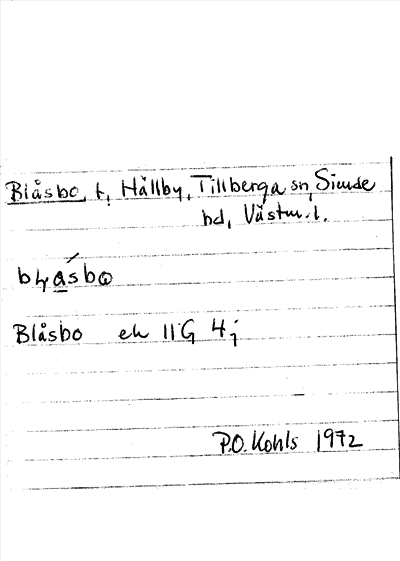 Blåsbo, t, Hållby, Tillberga sn, Siende
hd, Västm. l.
blåsbo
Blåsbo ek 11G 4j
P.O. Kohls 1972